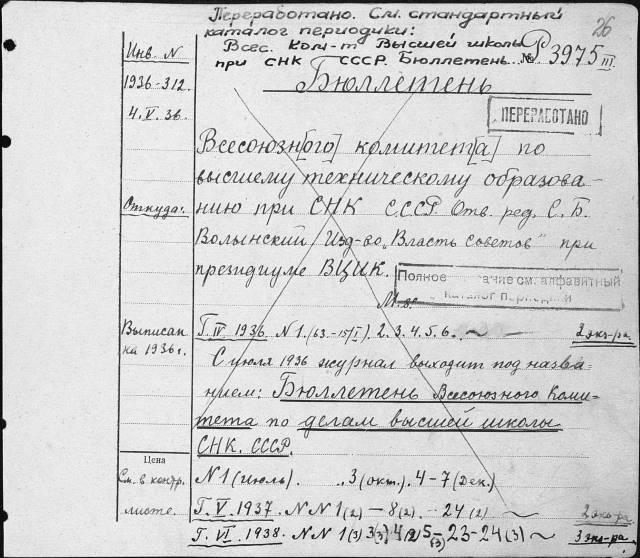 Переработано. См. стандартный
каталог периодики:
Всес. Ком-т Высшей школы
при СНК СССР. Бюллетень.
26
№ Р 3975 III
Инв. N
1936-312
4.V.36.
Бюллетень
ПЕРЕРАБОТАНО
Всесоюзн[ого] комитет[а] по
высшему техническому образова-
нию при СНК СССР. Отв. ред. С. Б.
Откуда:
Волынский. Изд-во „Власть советов" при
президиуме ВЦИК.
Полное см. алфавитный
каталог
М.
Выписан
на 1936 г.
Г. IV. 1936. N 1. 2. 3. 4. 5. 6. ~ — 2 экз-ра.
С июля 1936 журнал выходит под назва-
нием: Бюллетень Всесоюзного Коми-
тета по делам высшей школы
СНК. СССР.
Цена
См. в контр.
листе.
N 1 (июль). 3 (окт.) 4-7 (дек.)
Г. V. 1937. N N 1(2) — 8(2) — 24(2) ~ 2 экз-ра.
Г. VI. 1938. N N 1(3) 3(3) 4(2) 5(3) — 23-24(3) ~ 3 экз-ра.